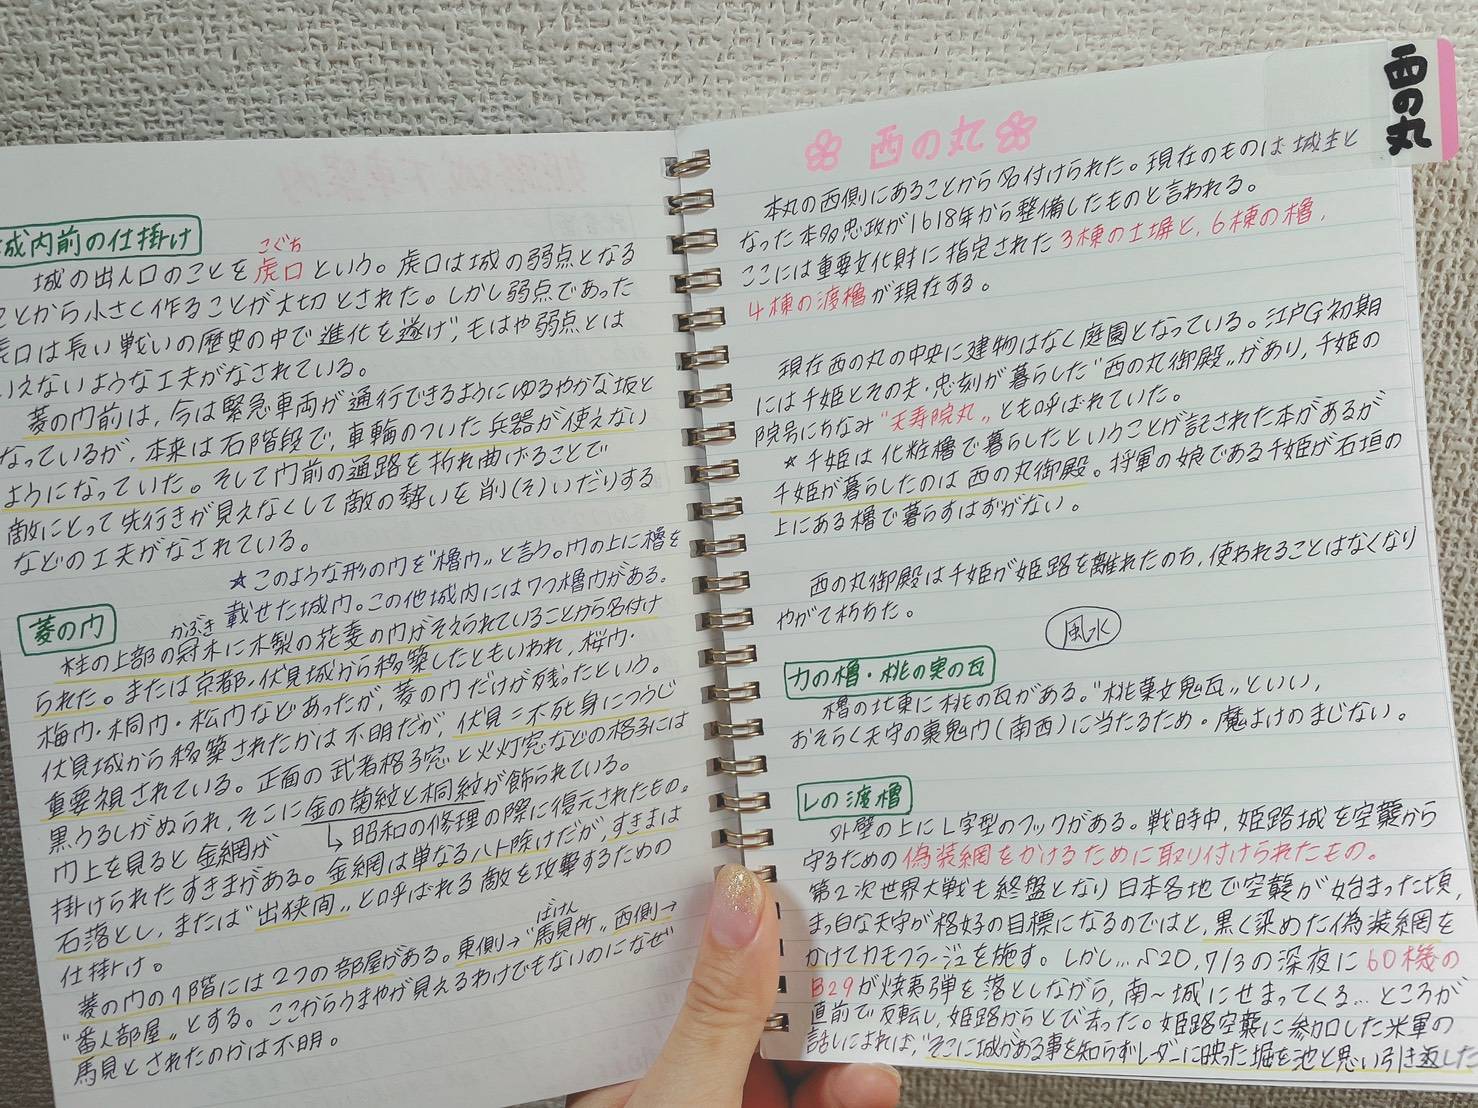 城内前の仕掛け
こぐち
城の出入口のことを虎口という。虎口は城の弱点となる
ことから小さく作ることが大切とされた。しかし弱点であった
虎口は長い戦いの歴史の中で進化を遂げ、もはや弱点とは
いえないような工夫がなされている。
菱の門前は、今は緊急車両が通行できるようにゆるやかな坂と
なっているが、本来は石階段で、車輪のついた兵器が使えない
ようになっていた。そして門前の通路を折れ曲げることで
敵にとって先行きが見えなくして敵の勢いを削(そ)いだりする
などの工夫がなされている。
☆このような形の門を"櫓門"と言う。門の上に櫓を
載せた城門。この他城内には7つ櫓門がある。
菱の門
かぶき
柱の上部の冠木に木製の花菱の門がそえられていることから名付け
られた。または京都・伏見城から移築したともいわれ、桜門・
梅門・桐門・松門などあったが、菱の門だけが残ったという。
伏見城から移築されたかは不明だが、伏見=不死身につうじ
重要視されている。正面の武者格子窓と火灯窓などの格子には
黒うるしがぬられ、そこに金の菊紋と桐紋が飾られている。
↳昭和の修理の際に復元されたもの。
門上を見ると金網が
掛けられたすきまがある。金網は単なるハト除けだが、すきまは
石落とし、または"出狭間"と呼ばれる敵を攻撃するための
仕掛け。
ばけん
菱の門の1階には2つの部屋がある。東側→"馬見所"西側→
"番人部屋"とする。ここからうまやが見えるわけでもないのになぜ
馬見とされたのかは不明。
西の丸
西の丸
本丸の西側にあることから名付けられた。現在のものは城主と
なった本多忠政が1618年から整備したものと言われる。
ここには重要文化財に指定された3棟の土塀と、6棟の櫓、
4棟の渡櫓が現在する。
現在西の丸の中央に建物はなく庭園となっている。江戸G初期
には千姫とその夫・忠刻が暮らした"西の丸御殿"があり、千姫の
院号にちなみ"天寿院丸"とも呼ばれていた。
★千姫は化粧櫓で暮らしたということが記された本があるが
千姫が暮らしたのは西の丸御殿。将軍の娘である千姫が石垣の
上にある櫓で暮らすはずがない。
西の丸御殿は千姫が姫路を離れたのち、使われることはなくなり
やがて朽ちた。
風水
カの櫓・桃の実の瓦
櫓の北東に桃の瓦がある。"桃菓文鬼瓦"といい、
おそらく天守の裏鬼門(南西)に当たるため・魔よけのまじない。
レの渡櫓
外壁の上にL字型のフックがある。戦時中、姫路城を空襲から
守るための偽装網をかけるために取り付けられたもの。
第2次世界大戦も終盤となり日本各地で空襲が始まった頃、
まっ白な天守が格好の目標になるのではと、黒く染めた偽装網を
かけてカモフラージュを施す。しかし…S20,7/3の深夜に60機の
B29が焼夷弾を落としながら、南~城にせまってくる…ところが
直前で反転し、姫路からとび去った。姫路空襲に参加した米軍の
話しによれば、"そこに城がある事を知らずレーダーに映った堀を池と思い引き返した